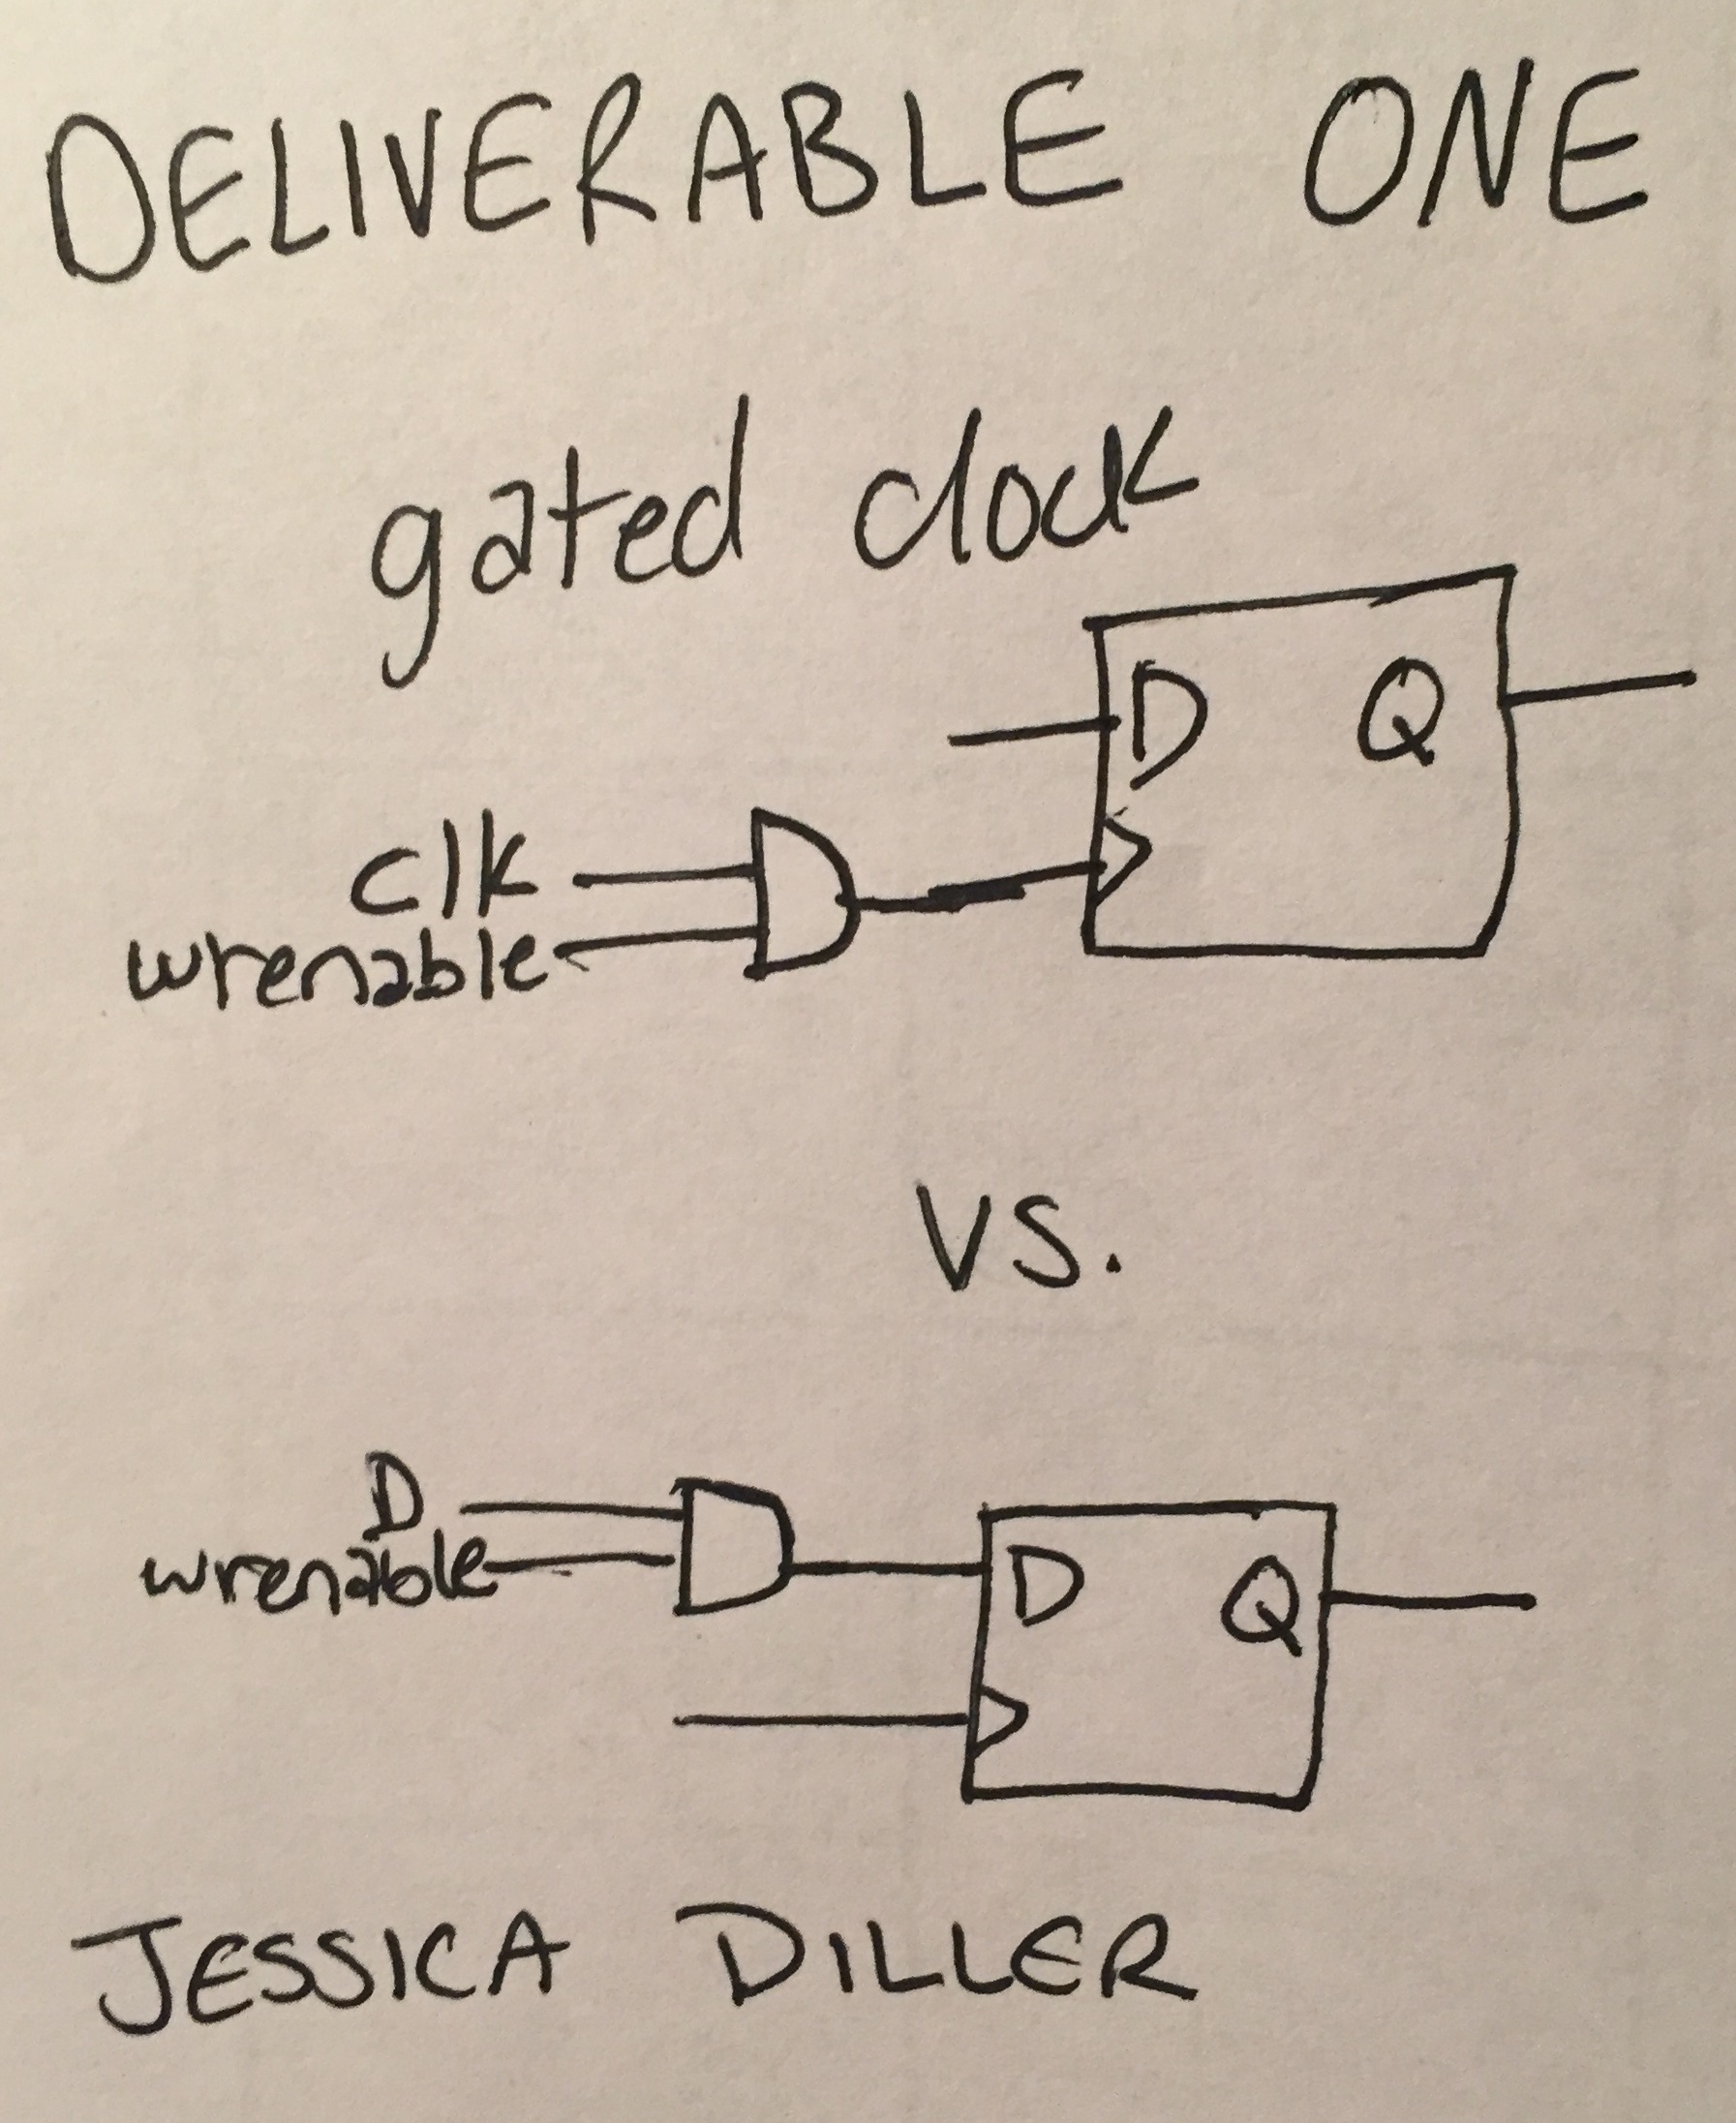 DELIVERABLE ONE
gated clock
D
Q
clk
wrenable
vs.
D
D
Q
wrenable
JESSICA DILLER